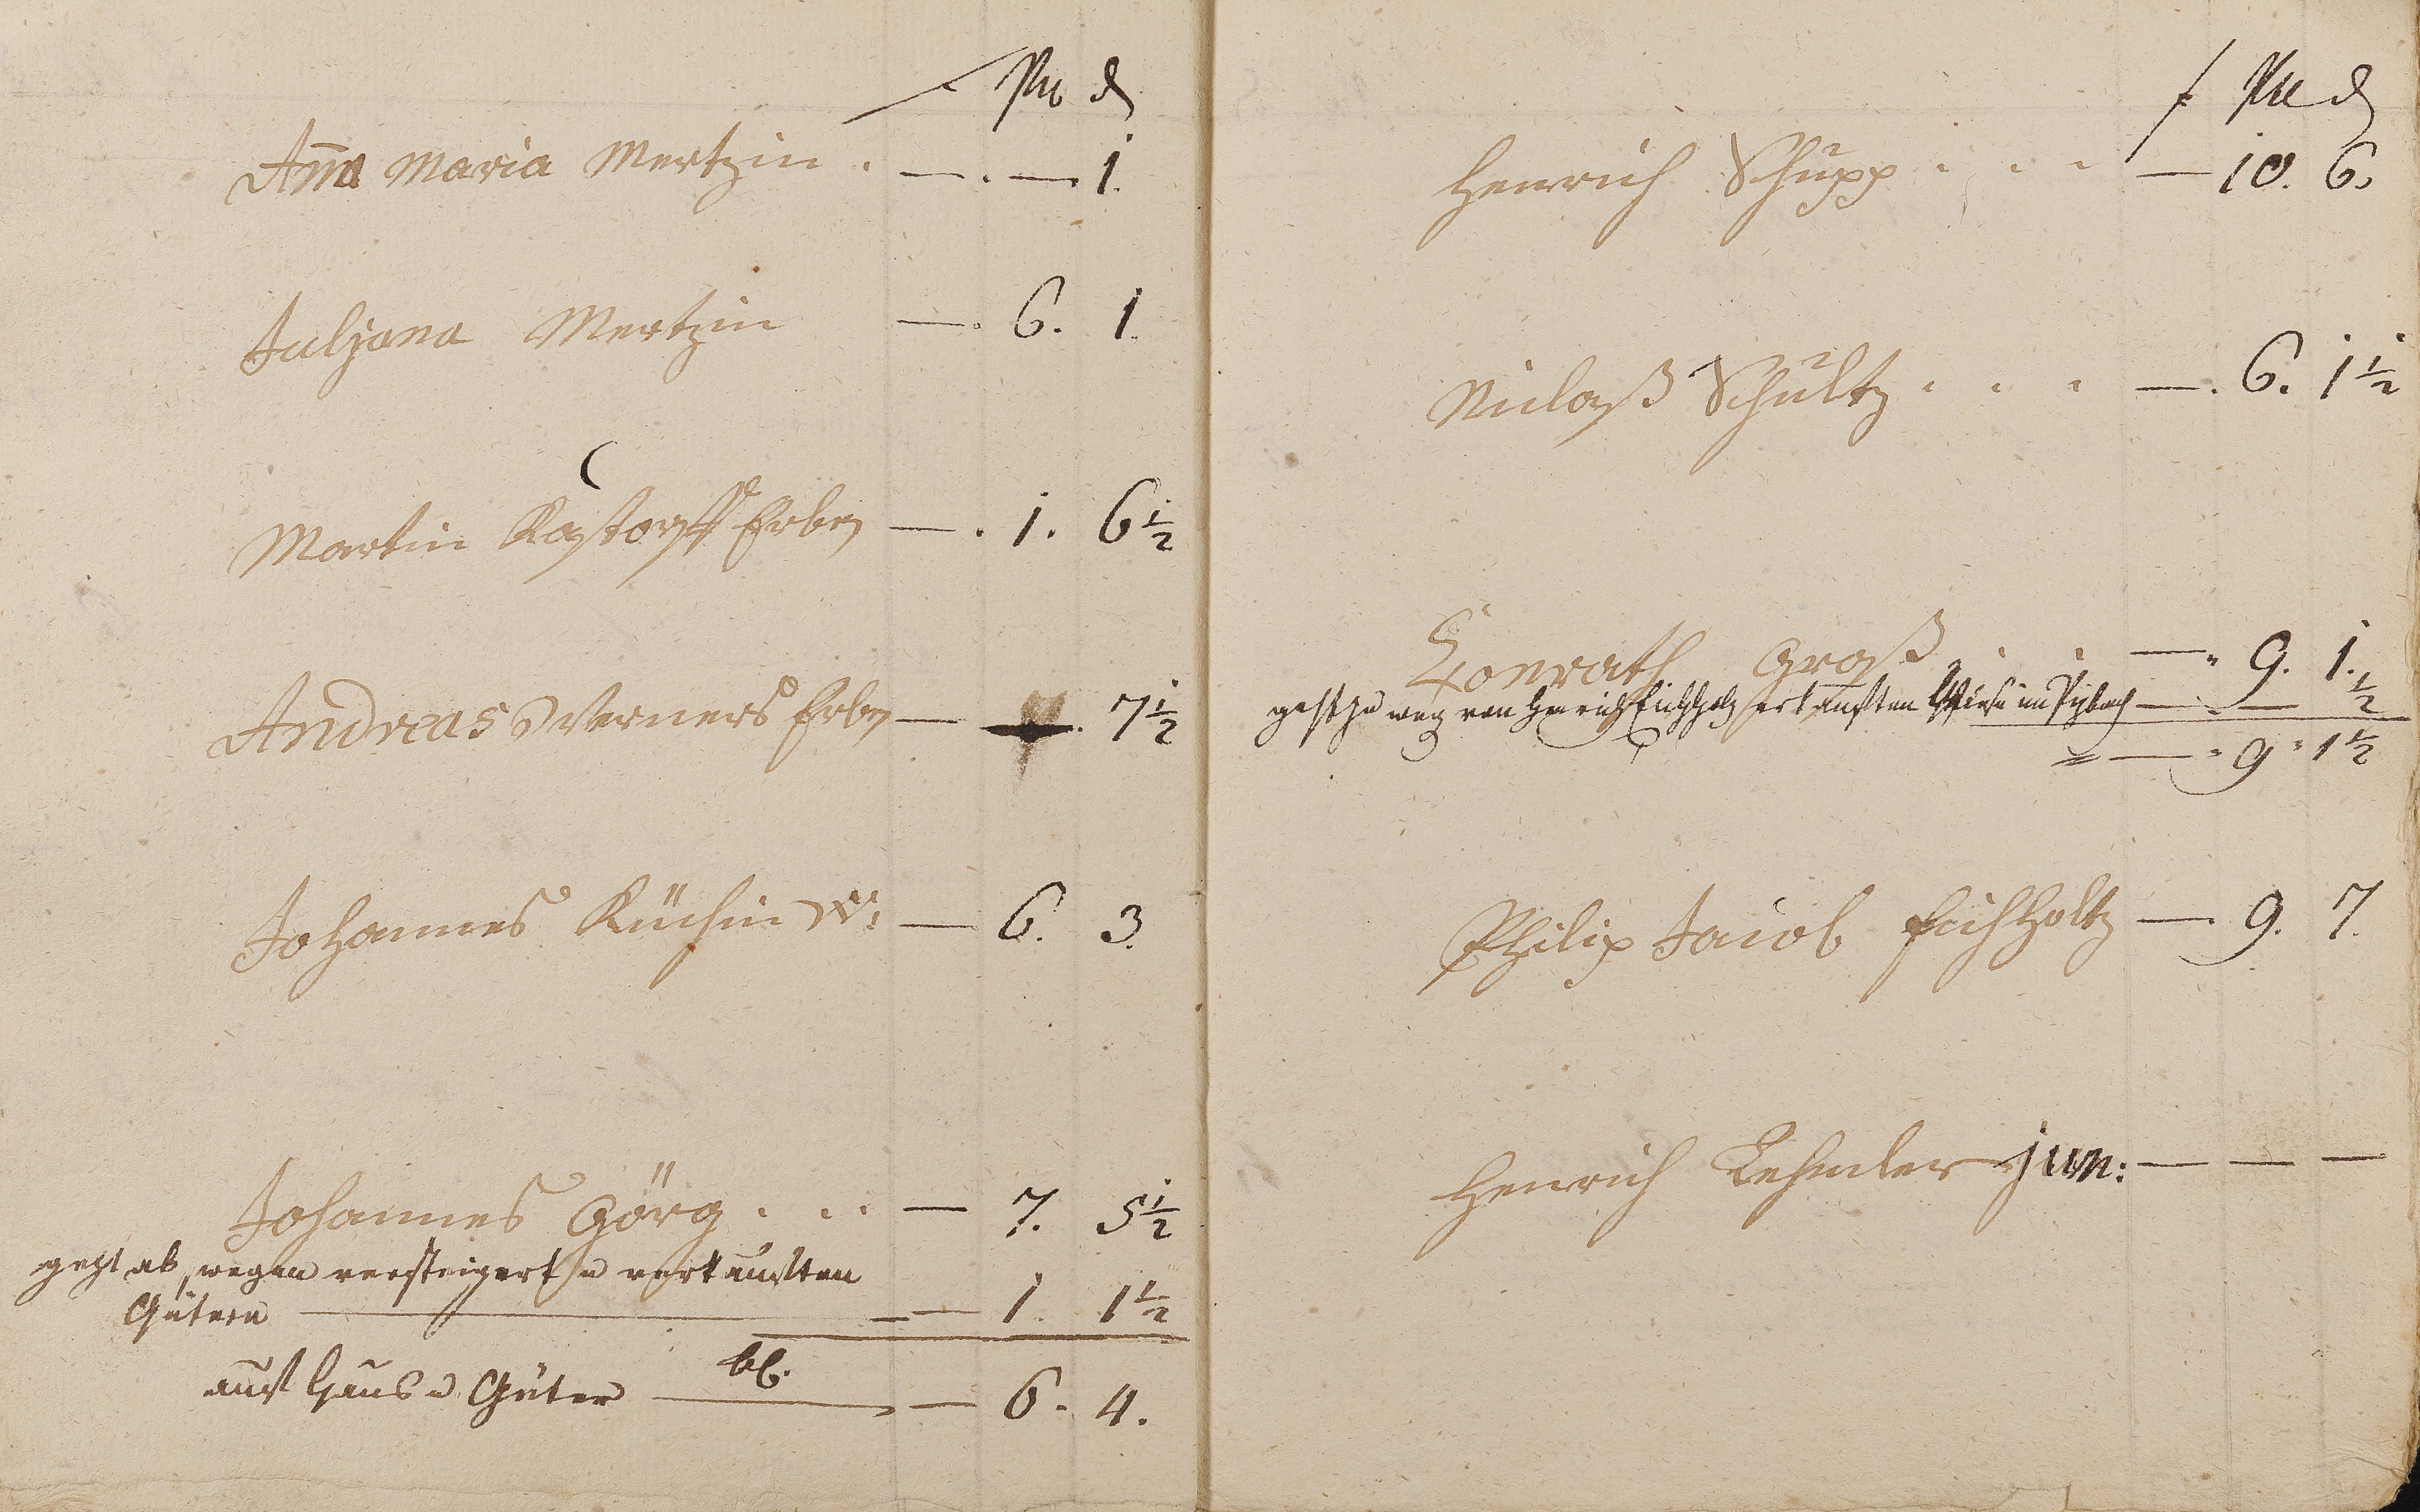 f alb d
Anna Maria Mertzin . — . — . 1.
Juljana Mertzin — . 6. 1.
Martin Kastorff Erben — . 1. 6½
Andreas Werners Erben — . 7½
Johannes Küchin W: — 6. 3.
Johannes Görg . . . — 7. 5½
geht ab, wegen versteigert u verkaufften
Gütern — 1. 1½
bl.
auff Haus u Güter — 6. 4.
f alb d
Henrich Schupp . . . — 10. 6.
Niclaß Schultz . . . — . 6. 1½
Conrath Groß . . — . 9. 1.
geht zu weg. von Henrich Eichholz erkaufften Wiese im — . — ½
— . 9 . 1½
Philip Jacob Eichholtz — . 9. 7.
Henrich Lehmler jun: — — —